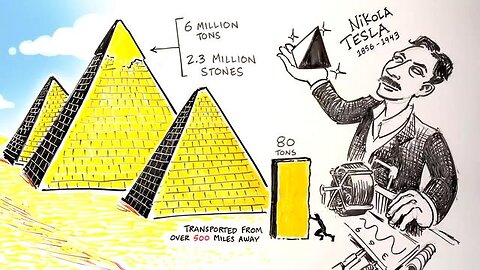 6 MILLION
TONS
2.3 MILLION
STONES
NIKOLA
TESLA
1856-1943
80
TONS
TRANSPORTED FROM
OVER 500 MILES AWAY